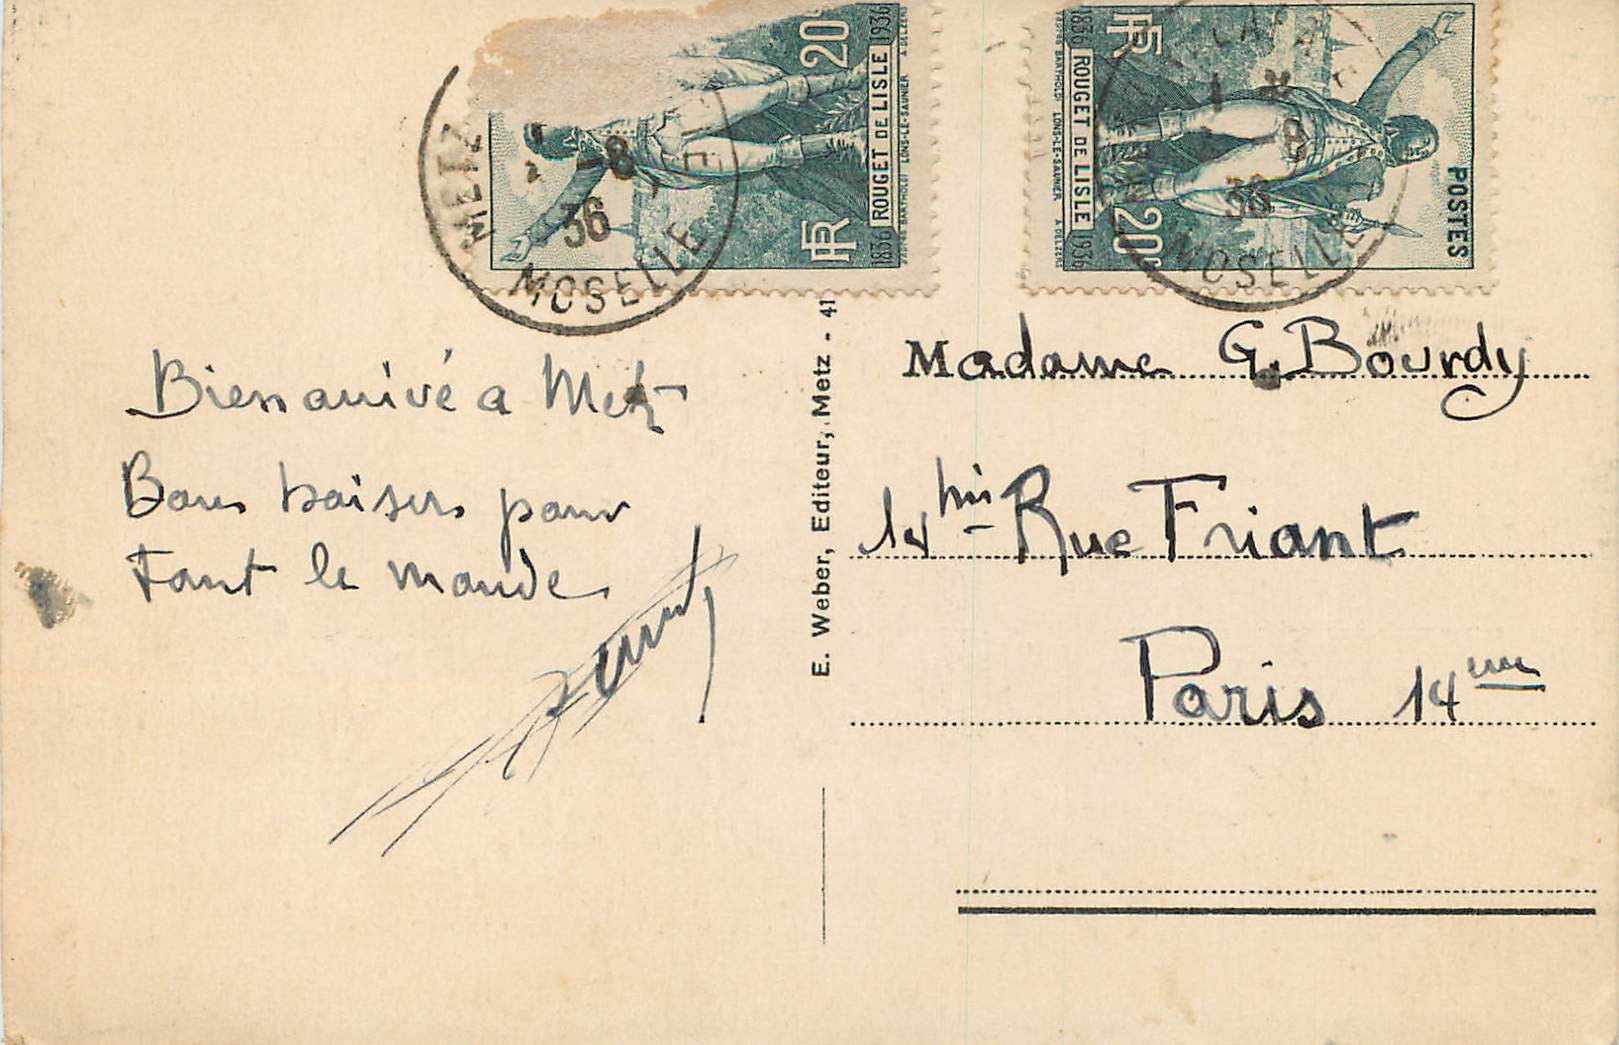 20c
1836 ROUGET DE LISLE 1936
RF
LONS-LE-SAUNIER
METZ
-8
36
MOSELLE
POSTES
RF
20c
1836 ROUGET DE LISLE 1936
BARTHOLDI LONS-LE-SAUNIER A.DELZERS
8
36
MOSELLE
Bien arrivé a Metz
Bons baisers pour
tout le monde
E. Weber, Editeur, Metz - 41
Madame G. Bourdy
14 bis Rue Friant
Paris 14eme